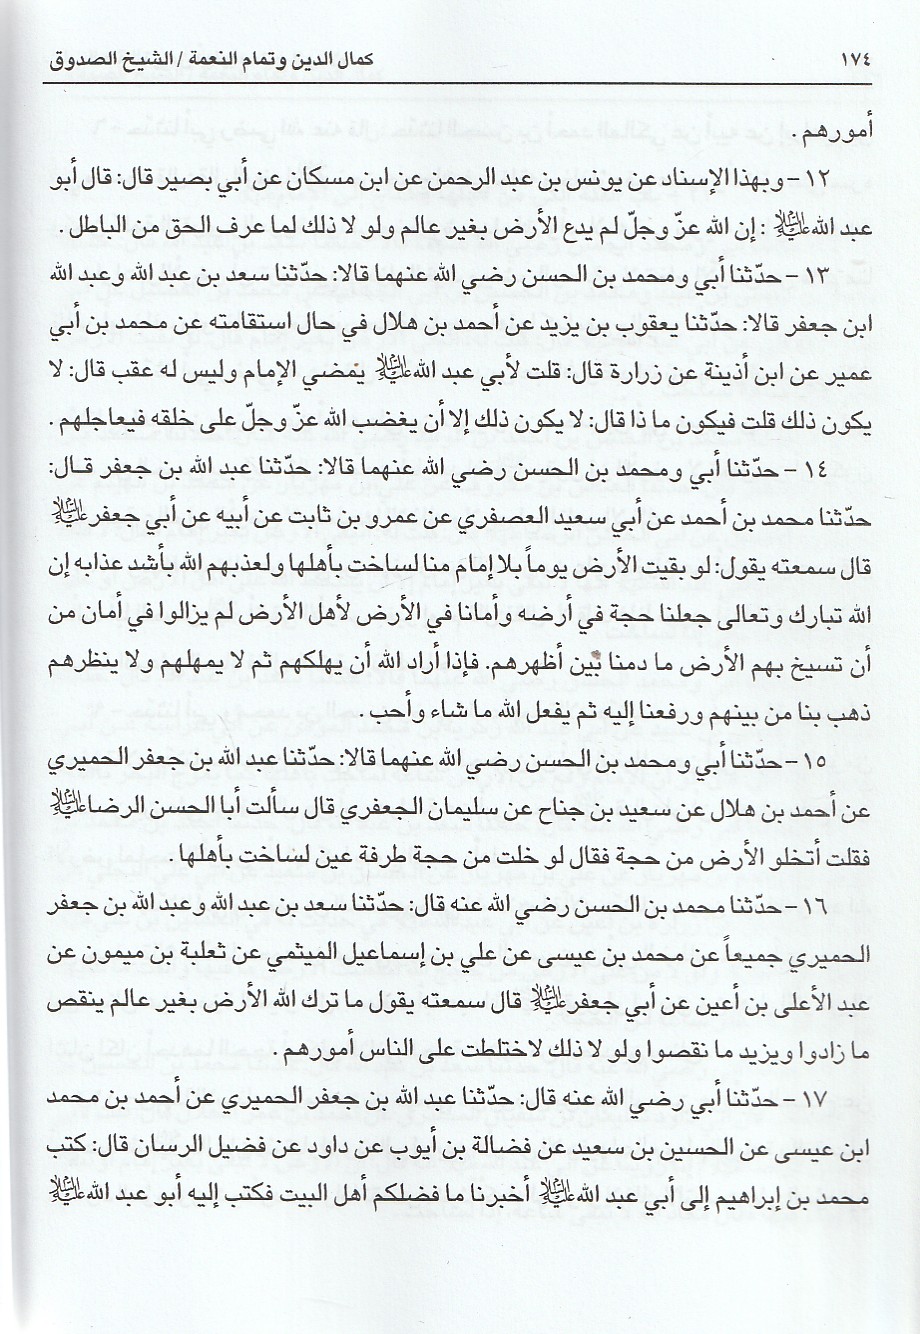 ١٧٤ كمال الدين وتمام النعمة / الشيخ الصدوق
أمورهم .
١٢ - وبهذا الإسناد عن يونس بن عبد الرحمن عن ابن مسكان عن أبي بصير قال: قال أبو
عبد الله عليه السلام : إن الله عزّ وجلّ لم يدع الأرض بغير عالم ولو لا ذلك لما عرف الحق من الباطل .
١٣ - حدّثنا أبي ومحمد بن الحسن رضي الله عنهما قالا: حدّثنا سعد بن عبد الله وعبد الله
ابن جعفر قالا: حدّثنا يعقوب بن يزيد عن أحمد بن هلال في حال استقامته عن محمد بن أبي
عمير عن ابن أذينة عن زرارة قال: قلت لأبي عبد الله عليه السلام يمضي الإمام وليس له عقب قال: لا
يكون ذلك قلت فيكون ما ذا قال: لا يكون ذلك إلا أن يغضب الله عزّ وجلّ على خلقه فيعاجلهم .
١٤ - حدّثنا أبي ومحمد بن الحسن رضي الله عنهما قالا: حدّثنا عبد الله بن جعفر قـال:
حدّثنا محمد بن أحمد عن أبي سعيد العصفري عن عمرو بن ثابت عن أبيه عن أبي جعفر عليه السلام
قال سمعته يقول: لو بقيت الأرض يوماً بلا إمام منا لساخت بأهلها ولعذبهم الله بأشد عذابه إن
الله تبارك وتعالى جعلنا حجة في أرضه وأمانا في الأرض لأهل الأرض لم يزالوا في أمان من
أن تسيخ بهم الأرض ما دمنا بين أظهرهم. فإذا أراد الله أن يهلكهم ثم لا يمهلهم ولا ينظرهم
ذهب بنا من بينهم ورفعنا إليه ثم يفعل الله ما شاء وأحب .
١٥ - حدّثنا أبي ومحمد بن الحسن رضي الله عنهما قالا: حدّثنا عبد الله بن جعفر الحميري
عن أحمد بن هلال عن سعيد بن جناح عن سليمان الجعفري قال سألت أبا الحسن الرضا عليه السلام
فقلت أتخلو الأرض من حجة فقال لو خلت من حجة طرفة عين لساخت بأهلها .
١٦ - حدّثنا محمد بن الحسن رضي الله عنه قال: حدّثنا سعد بن عبد الله وعبد الله بن جعفر
الحميري جميعاً عن محمد بن عيسى عن علي بن إسماعيل الميثمي عن ثعلبة بن ميمون عن
عبد الأعلى بن أعين عن أبي جعفر عليه السلام قال سمعته يقول ما ترك الله الأرض بغير عالم ينقص
ما زادوا ويزيد ما نقصوا ولو لا ذلك لاختلطت على الناس أمورهم .
١٧ - حدّثنا أبي رضي الله عنه قال: حدّثنا عبد الله بن جعفر الحميري عن أحمد بن محمد
ابن عيسى عن الحسين بن سعيد عن فضالة بن أيوب عن داود عن فضيل الرسان قال: كتب
محمد بن إبراهيم إلى أبي عبد الله عليه السلام أخبرنا ما فضلكم أهل البيت فكتب إليه أبو عبد الله عليه السلام